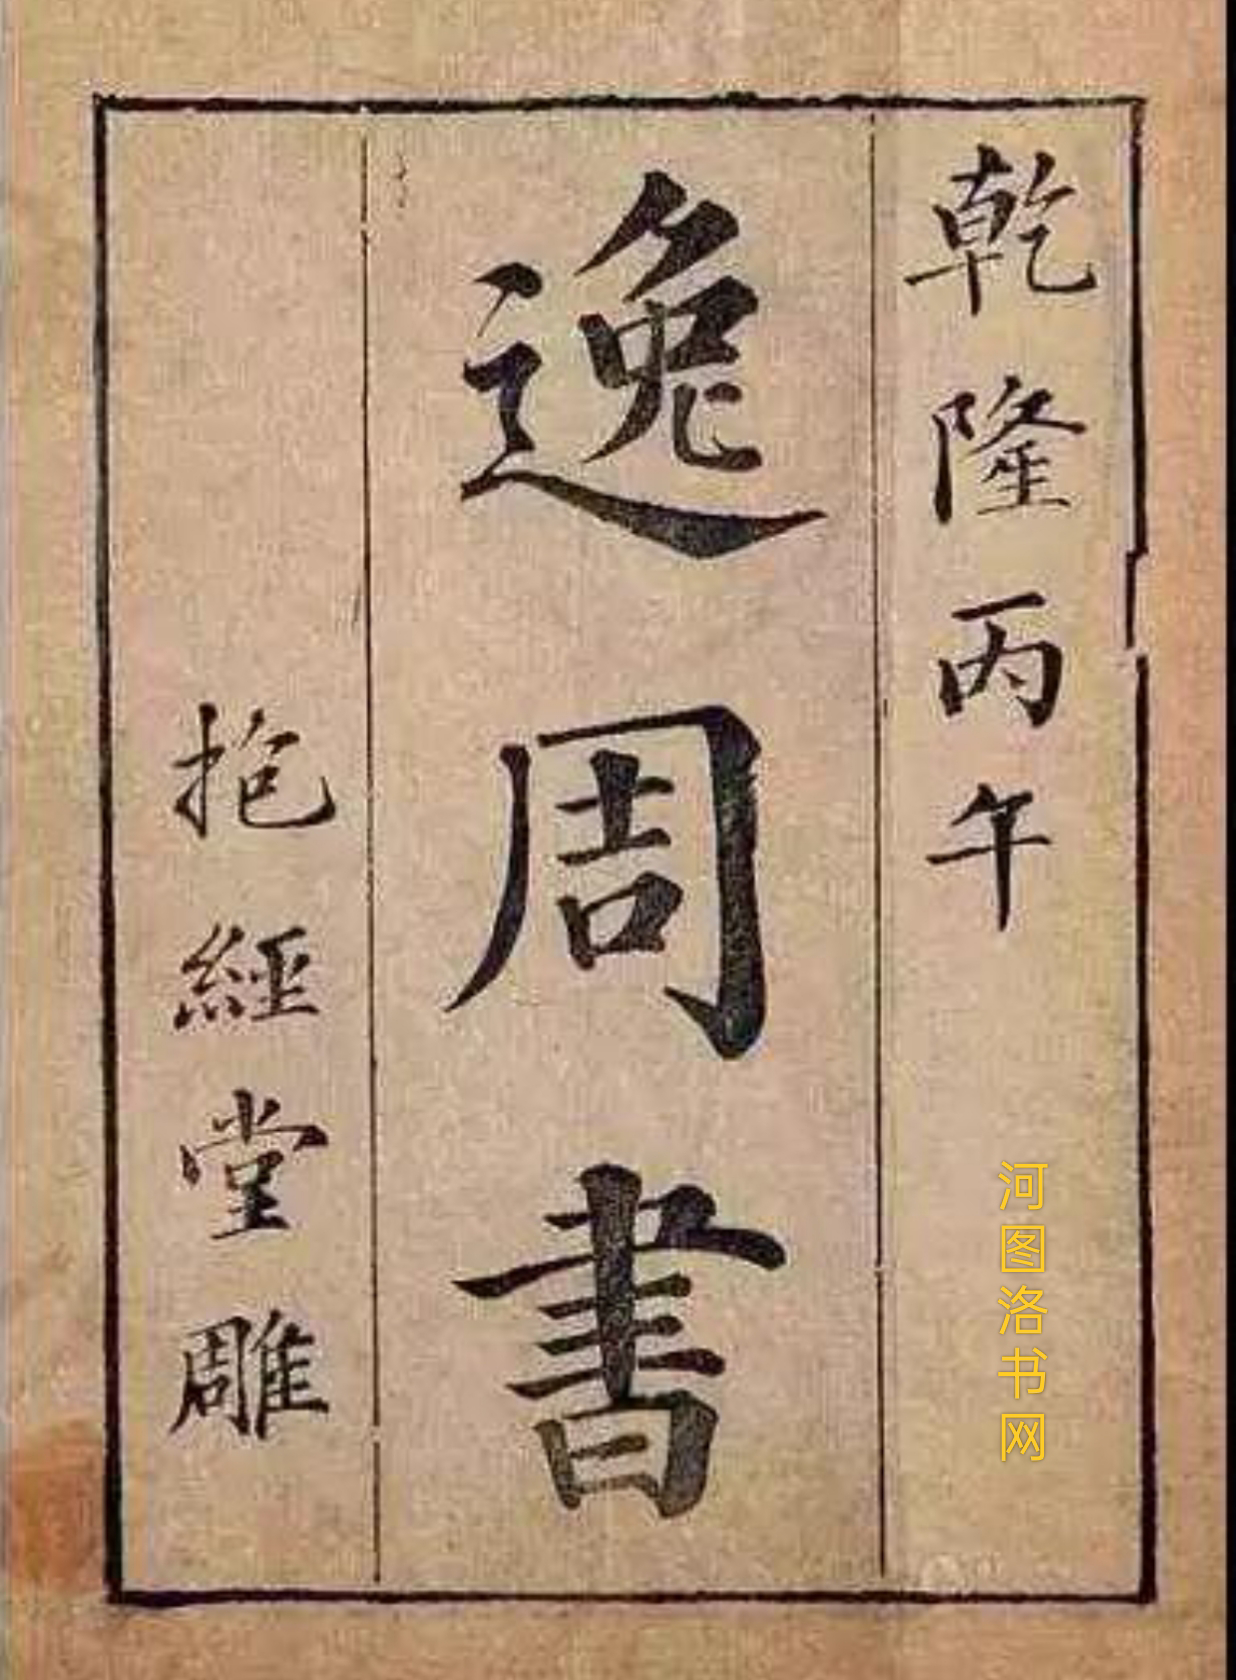 乾隆丙午
逸周書
抱經堂雕
河图洛书网